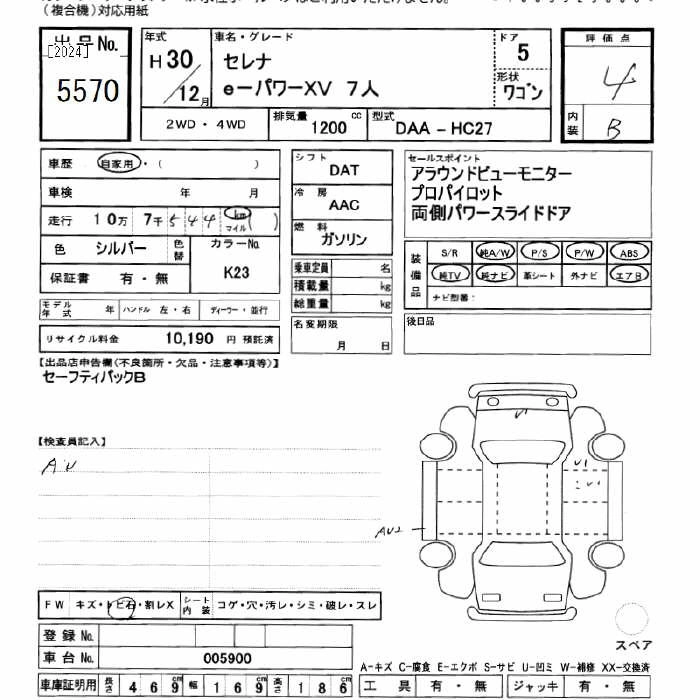 （複合機）対応用紙
出品No.
[2024]
5570
年式
H30/12月
車名・グレード
セレナ
e－パワーXV 7人
ドア
5
形状
ワゴン
評価点
4
内装
B
2WD・4WD
排気量
1200 cc
型式
DAA－HC27
車歴 自家用・（ ）
車検 年 月
走行 10万 7千 544 km マイル ( )
色 シルバー 色替
カラーNo.
K23
保証書 有・無
シフト
DAT
冷房
AAC
燃料
ガソリン
乗車定員 名
積載量 kg
総重量 kg
セールスポイント
アラウンドビューモニター
プロパイロット
両側パワースライドドア
装備品
S/R 純A/W P/S P/W ABS
純TV 純ナビ 革シート 外ナビ エアB
ナビ型番：
モデル年式 年 ハンドル 左・右 ディーラー・並行
リサイクル料金 10,190 円 預託済
名変期限
月 日
後日品
【出品店申告欄(不良箇所・欠品・注意事項等)】
セーフティパックB
【検査員記入】
AU
U1
U1
U1
AU2
FW キズ・トビ石・割レX シート内装 コゲ・穴・汚レ・シミ・破レ・スレ
登録No.
車台No. 005900
スペア
A－キズ C－腐食 E－エクボ S－サビ U－凹ミ W－補修 XX－交換済
車庫証明用 長さ 469 幅 169 高さ 186
工具 有・無 ジャッキ 有・無